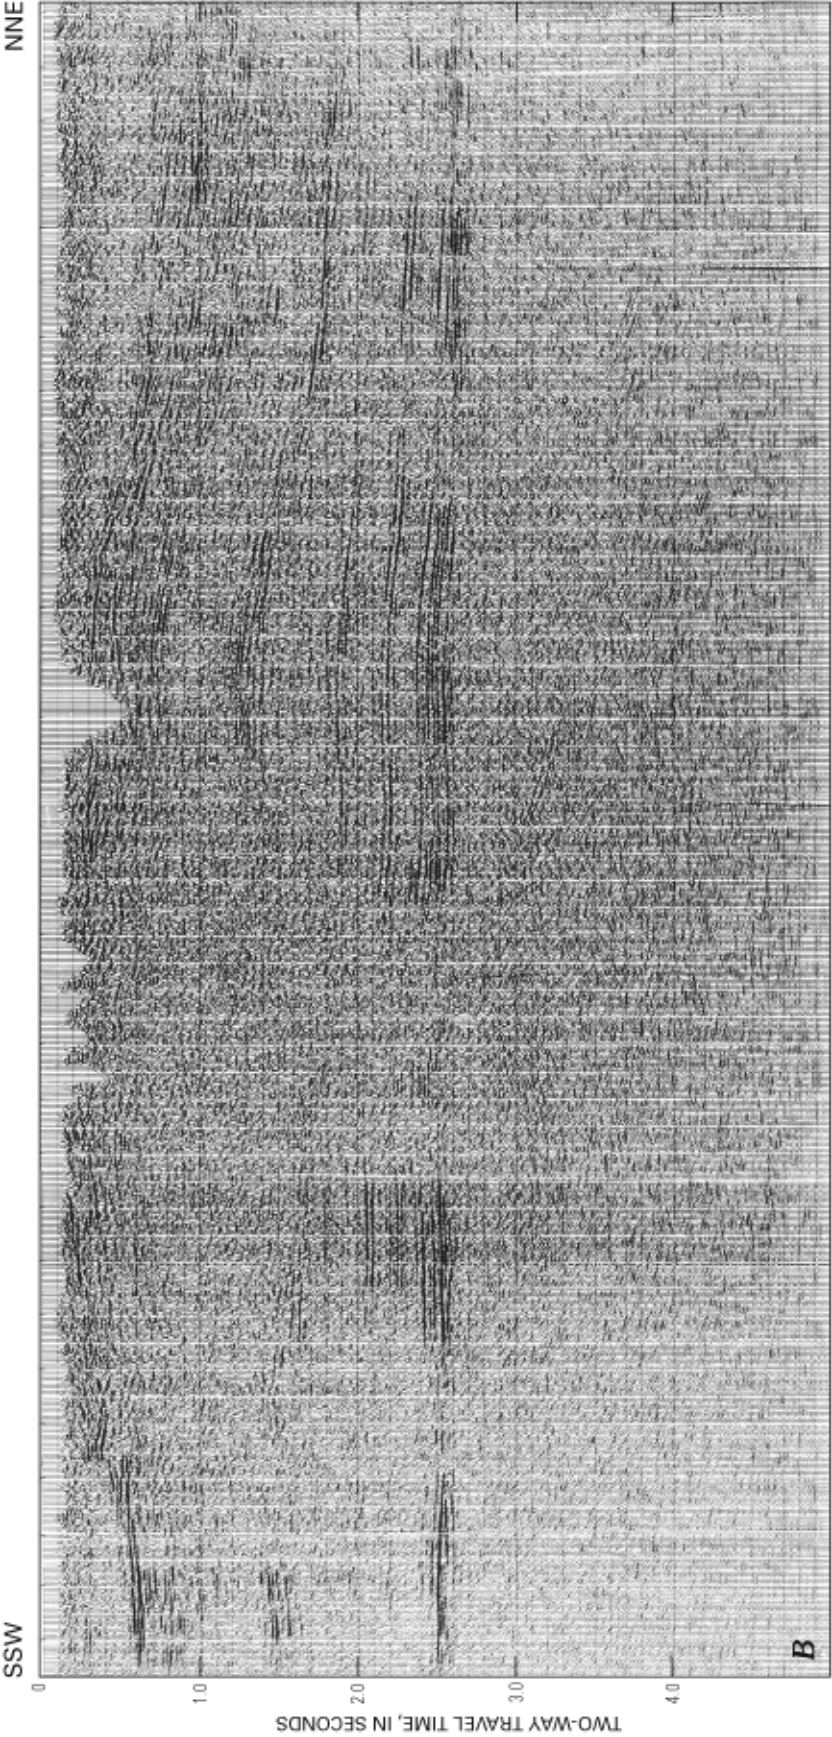 SSW
NNE
0
1.0
2.0
3.0
4.0
TWO-WAY TRAVEL TIME, IN SECONDS
B